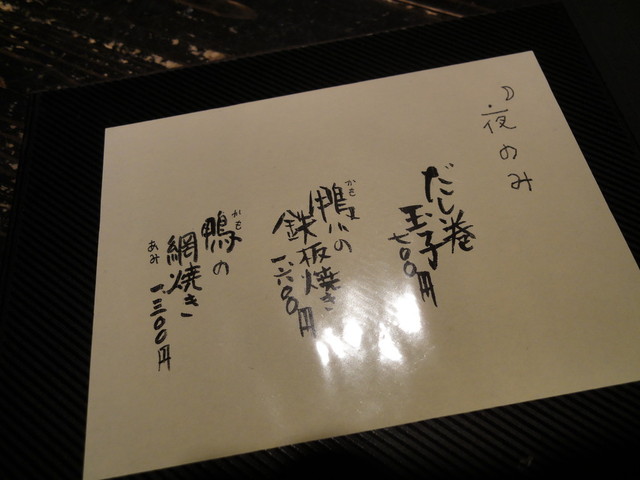 夜のみ
だし巻
玉子
七〇〇円
かも
鴨の
鉄板焼き
一、六〇〇円
かも
鴨の
網焼き
あみ
一、三〇〇円